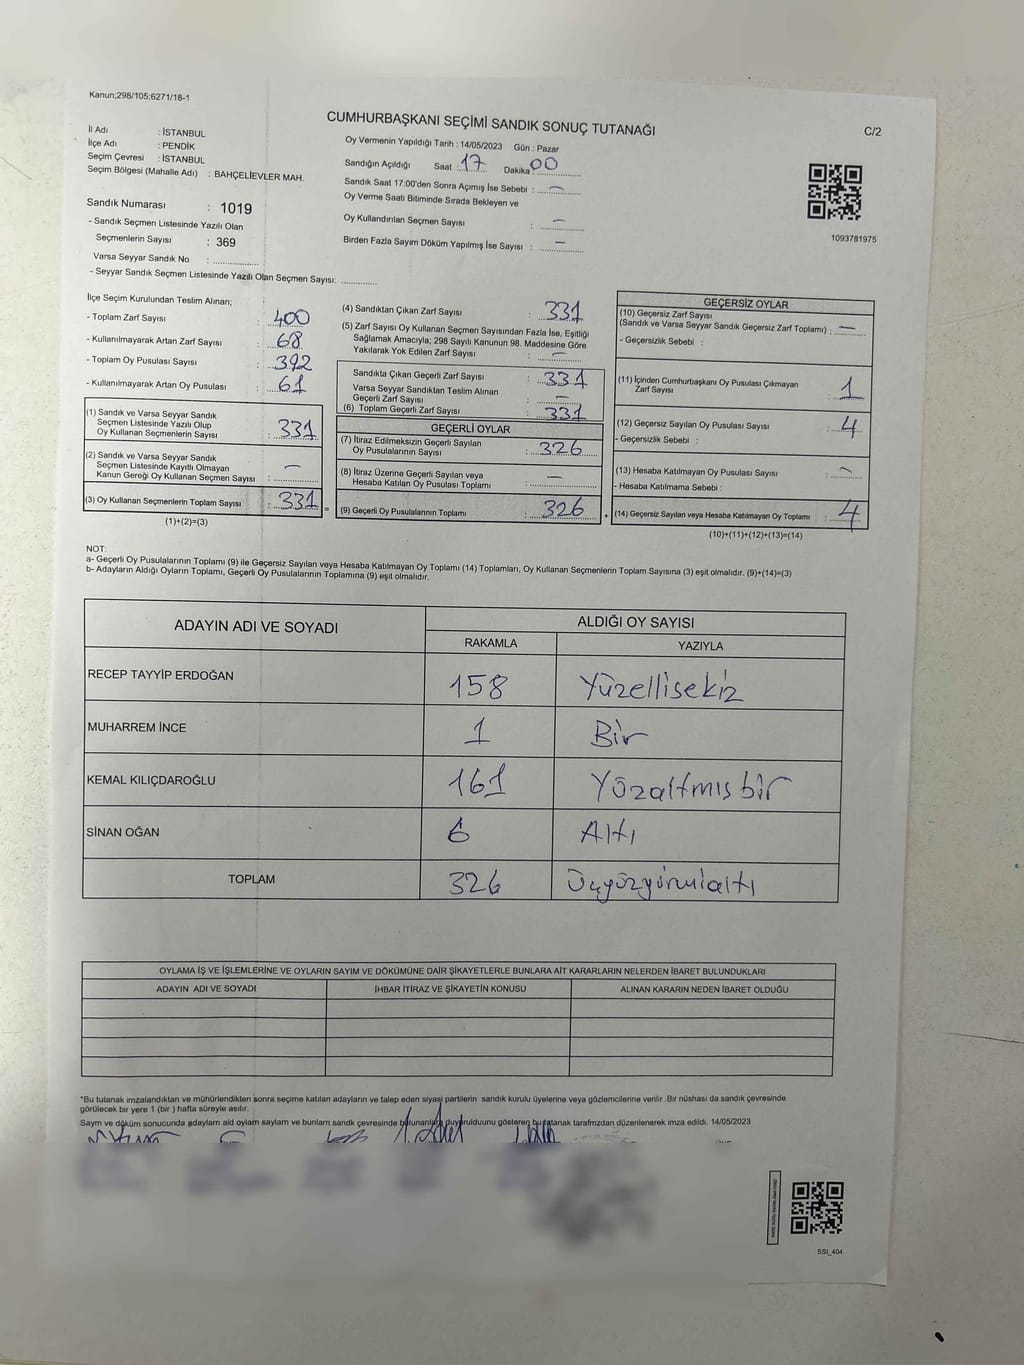 Kanun;298/105;6271/18-1
CUMHURBAŞKANI SEÇİMİ SANDIK SONUÇ TUTANAĞI
C/2
İl Adı : İSTANBUL
İlçe Adı : PENDİK
Seçim Çevresi : İSTANBUL
Seçim Bölgesi (Mahalle Adı) : BAHÇELİEVLER MAH.
Oy Vermenin Yapıldığı Tarih : 14/05/2023 Gün : Pazar
Sandığın Açıldığı Saat : 17 Dakika 00
Sandık Saat 17:00'den Sonra Açımış İse Sebebi : —
Oy Verme Saati Bitiminde Sırada Bekleyen ve
Oy Kullandırılan Seçmen Sayısı : —
Birden Fazla Sayım Döküm Yapılmış İse Sayısı : —
1093781975
Sandık Numarası : 1019
- Sandık Seçmen Listesinde Yazılı Olan
Seçmenlerin Sayısı : 369
Varsa Seyyar Sandık No :
- Seyyar Sandık Seçmen Listesinde Yazılı Olan Seçmen Sayısı:
İlçe Seçim Kurulundan Teslim Alınan;
- Toplam Zarf Sayısı : 400
- Kullanılmayarak Artan Zarf Sayısı : 68
- Toplam Oy Pusulası Sayısı : 392
- Kullanılmayarak Artan Oy Pusulası : 61
(1) Sandık ve Varsa Seyyar Sandık
Seçmen Listesinde Yazılı Olup
Oy Kullanan Seçmenlerin Sayısı : 331
(2) Sandık ve Varsa Seyyar Sandık
Seçmen Listesinde Kayıtlı Olmayan
Kanun Gereği Oy Kullanan Seçmen Sayısı : —
(3) Oy Kullanan Seçmenlerin Toplam Sayısı : 331 =
(1)+(2)=(3)
(4) Sandıktan Çıkan Zarf Sayısı : 331
(5) Zarf Sayısı Oy Kullanan Seçmen Sayısından Fazla İse, Eşitliği
Sağlamak Amacıyla; 298 Sayılı Kanunun 98. Maddesine Göre
Yakılarak Yok Edilen Zarf Sayısı : —
Sandıkta Çıkan Geçerli Zarf Sayısı : 331
Varsa Seyyar Sandıktan Teslim Alınan
Geçerli Zarf Sayısı : —
(6) Toplam Geçerli Zarf Sayısı : 331
GEÇERLİ OYLAR
(7) İtiraz Edilmeksizin Geçerli Sayılan
Oy Pusulalarının Sayısı : 326
(8) İtiraz Üzerine Geçerli Sayılan veya
Hesaba Katılan Oy Pusulası Toplamı : —
(9) Geçerli Oy Pusulalarının Toplamı : 326 +
GEÇERSİZ OYLAR
(10) Geçersiz Zarf Sayısı
(Sandık ve Varsa Seyyar Sandık Geçersiz Zarf Toplamı) : —
- Geçersizlik Sebebi :
(11) İçinden Cumhurbaşkanı Oy Pusulası Çıkmayan
Zarf Sayısı : 1
(12) Geçersiz Sayılan Oy Pusulası Sayısı : 4
- Geçersizlik Sebebi :
(13) Hesaba Katılmayan Oy Pusulası Sayısı : —
- Hesaba Katılmama Sebebi :
(14) Geçersiz Sayılan veya Hesaba Katılmayan Oy Toplamı : 4
(10)+(11)+(12)+(13)=(14)
NOT:
a- Geçerli Oy Pusulalarının Toplamı (9) ile Geçersiz Sayılan veya Hesaba Katılmayan Oy Toplamı (14) Toplamları, Oy Kullanan Seçmenlerin Toplam Sayısına (3) eşit olmalıdır. (9)+(14)=(3)
b- Adayların Aldığı Oyların Toplamı, Geçerli Oy Pusulalarının Toplamına (9) eşit olmalıdır.
ADAYIN ADI VE SOYADI ALDIĞI OY SAYISI
RAKAMLA YAZIYLA
RECEP TAYYİP ERDOĞAN 158 Yüzellisekiz
MUHARREM İNCE 1 Bir
KEMAL KILIÇDAROĞLU 161 Yüzaltmışbir
SİNAN OĞAN 6 Altı
TOPLAM 326 Üçyüzyirmialtı
OYLAMA İŞ VE İŞLEMLERİNE VE OYLARIN SAYIM VE DÖKÜMÜNE DAİR ŞİKAYETLERLE BUNLARA AİT KARARLARIN NELERDEN İBARET BULUNDUKLARI
ADAYIN ADI VE SOYADI İHBAR İTİRAZ VE ŞİKAYETİN KONUSU ALINAN KARARIN NEDEN İBARET OLDUĞU
*Bu tutanak imzalandıktan ve mühürlendikten sonra seçime katılan adayların ve talep eden siyasi partilerin sandık kurulu üyelerine veya gözlemcilerine verilir .Bir nüshası da sandık çevresinde
görülecek bir yere 1 (bir ) hafta süreyle asılır.
Sayım ve döküm sonucunda adayların ald oyların sayların ve bunların sandık çevresinde bulunanlara duyurulduunu gösteren bu tutanak tarafmzdan düzenlenerek imza edildi. 14/05/2023
SSI_404